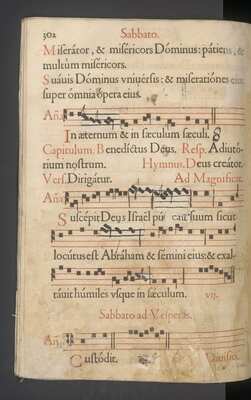 302 Sabbato.
Miserátor, & miséricors Dóminus: pátiens, &
multùm miséricors.
Suáuis Dóminus vniuérsis: & miseratiónes eius
super ómnia ópera eius.
Añ.
In æternum & in sæculum sæculi.
Capitulum. Benedíctus Deus. Resp. Adiutó-
rium nostrum. Hymnus. Deus creátor.
Vers. Dirigátur. Ad Magnificat.
Añã
Suscépit Deus Israël pú erum suum sicut
locútus est Abráham & semini eius: & exal-
táuit húmiles vsque in sæculum. vij.
Sabbato ad Vesperas.
Añ.
Custódit.